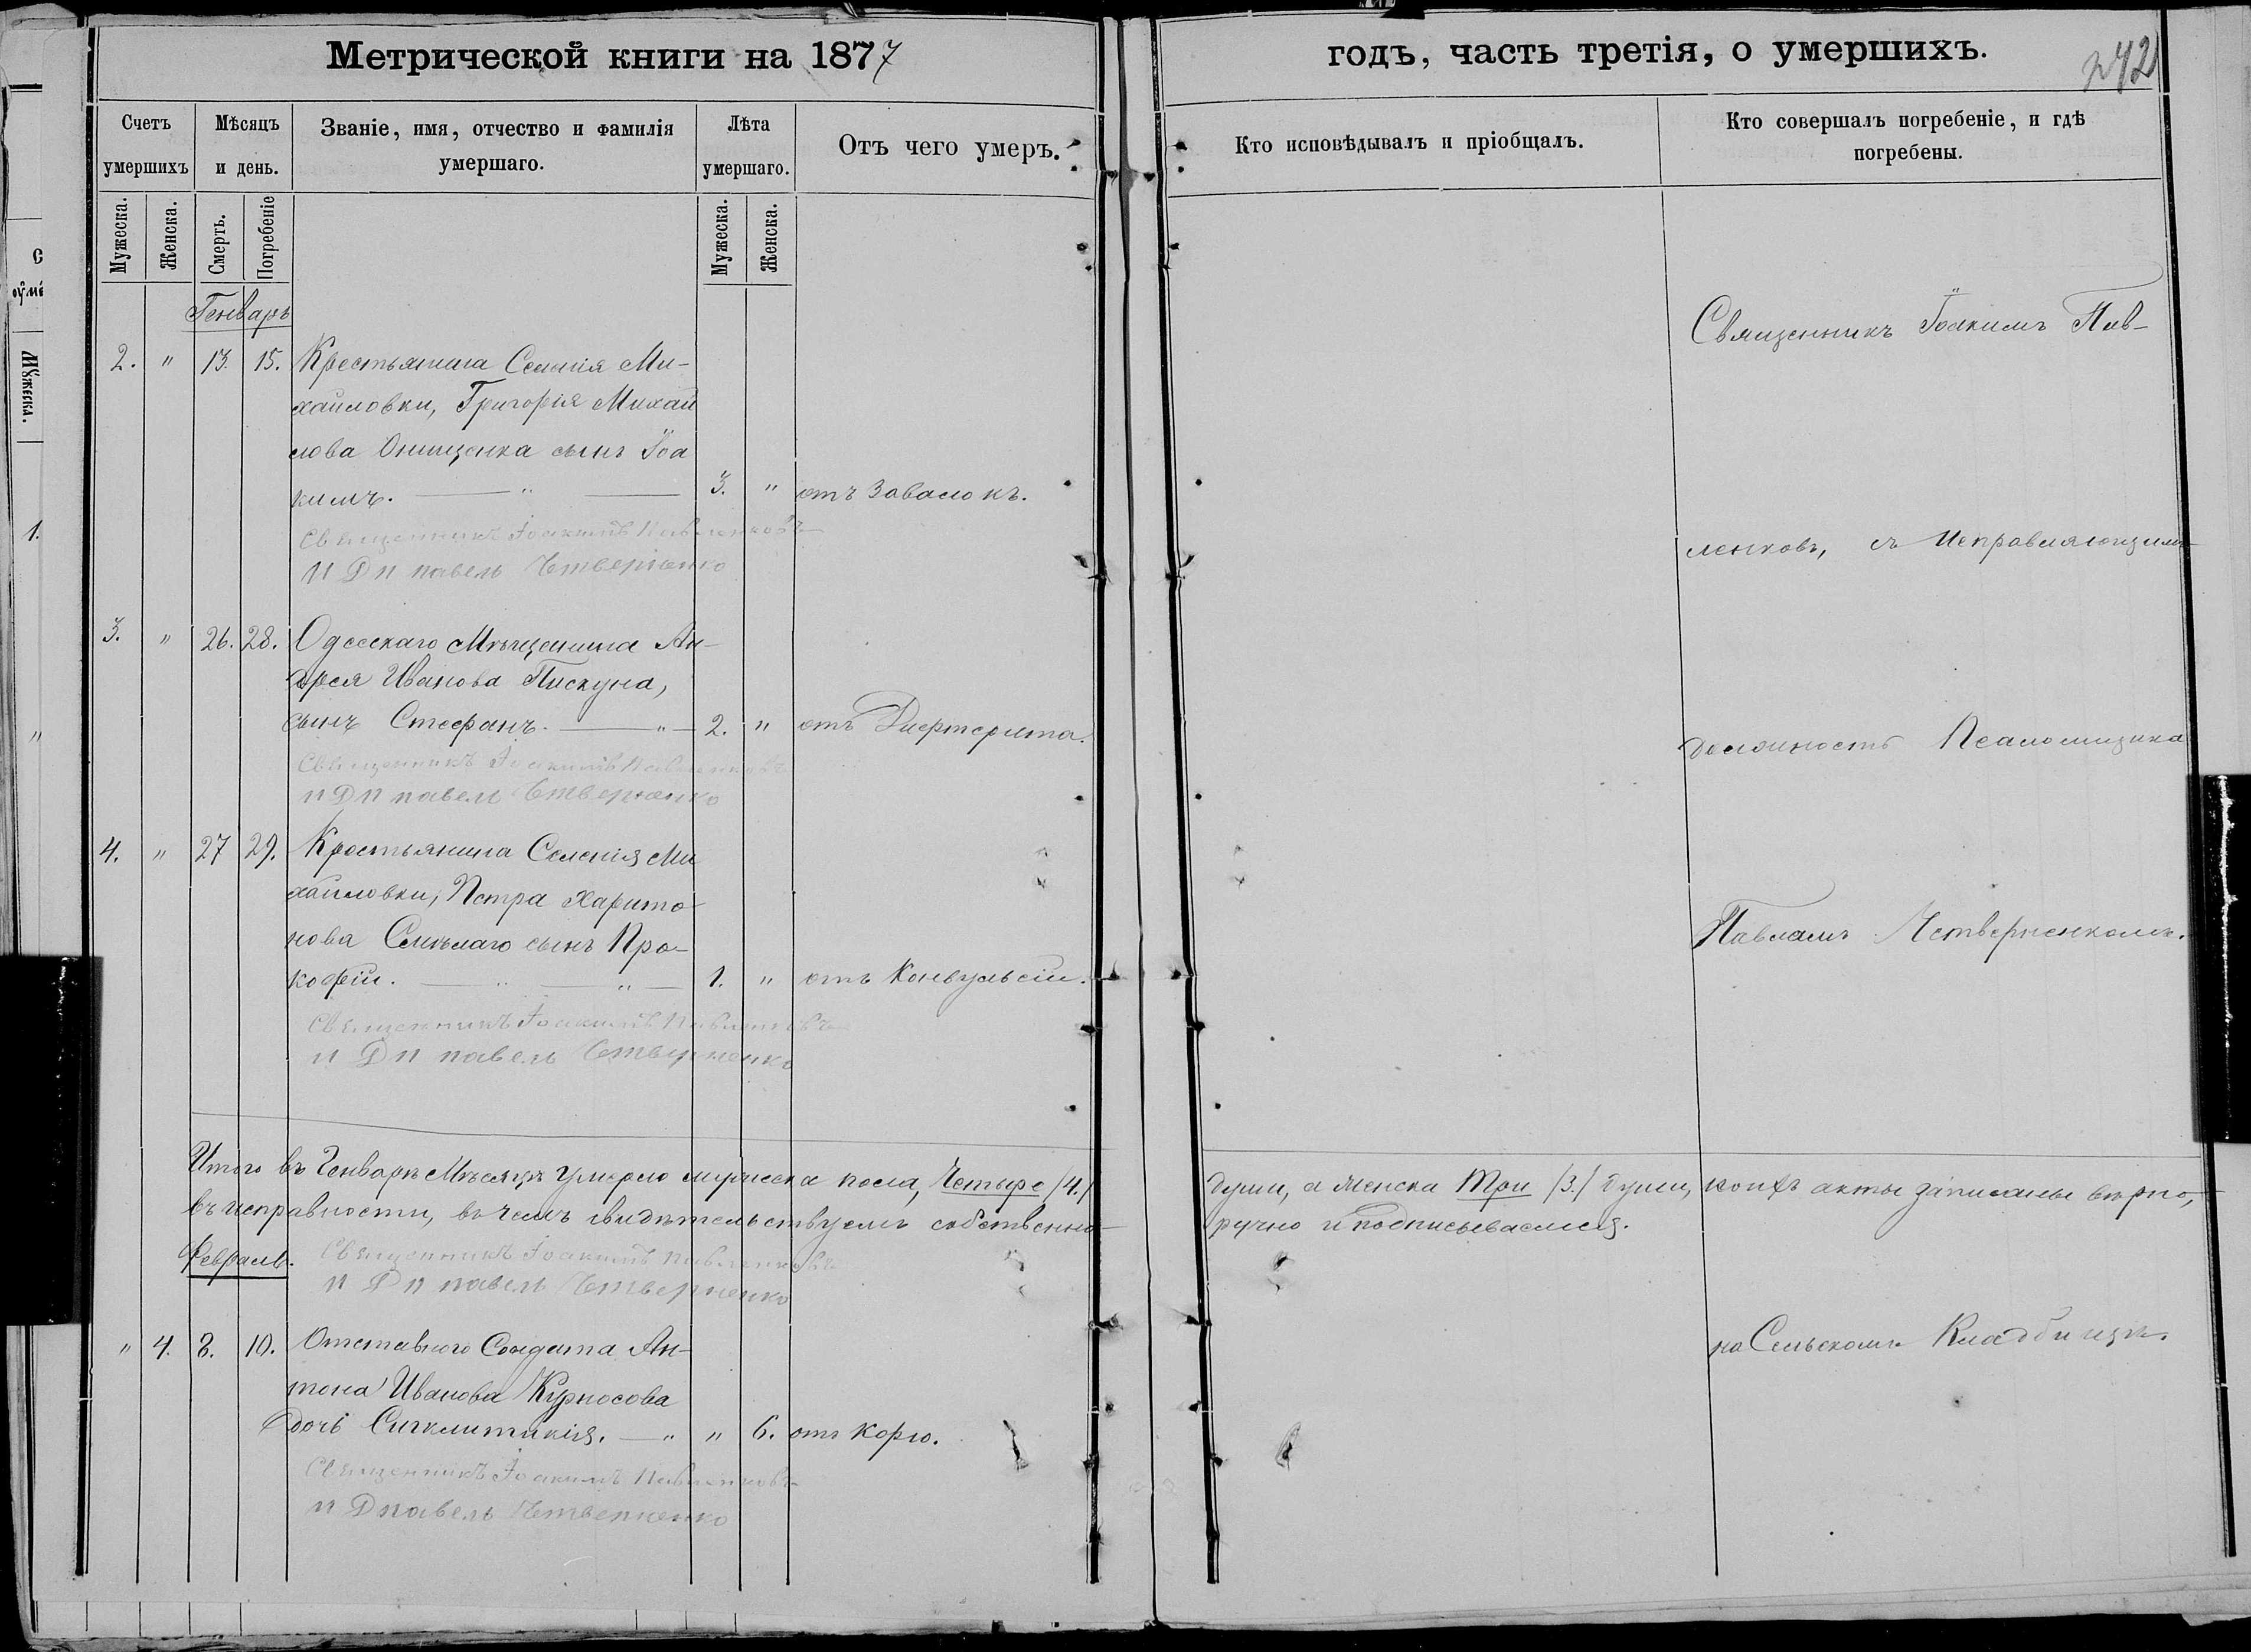 Метрической книги на 1877
годъ, часть третія, о умершихъ.
242
Счетъ умершихъ
Мѣсяцъ и день.
Званіе, имя, отчество и фамилія умершаго.
Лѣта умершаго.
Отъ чего умеръ.
Кто исповѣдывалъ и пріобщалъ.
Кто совершалъ погребеніе, и гдѣ погребены.
Мужеска.
Женска.
Смерть.
Погребеніе
Мужеска.
Женска.
Генварь
2. " 13. 15. Крестьянина Селенія Ми-
хайловки, Григорія Михай
лова Онищенка сынъ Іоа
кимъ. — " — 3. " отъ Завалокъ.
Священникъ Іоакимъ Павленковъ
И Д П павелъ Четверненко
3. " 26. 28. Одесскаго Мѣщанина Ан-
дрея Иванова Пискуна,
сынъ Стефанъ. — " — 2. " отъ Дифтерита.
Священникъ Іоакимъ Павленковъ
и Д П павелъ Четверненко
4. " 27 29. Крестьянина Селенія Ми
хайловки, Петра Харито-
нова сынъ Про-
кофій. — " — " — 1. " отъ Конвульсіи.
Священникъ Іоакимъ Павленковъ
и Д П павелъ Четверненко
Итого въ Генварѣ Мѣсяцѣ умерло мужеска пола, Четыре /4./ души, а женска Три /3./ души, коихъ акты записаны вѣрно,
въ исправности, въ чемъ свидѣтельствуемъ собственно-ручно и подписываемся.
Февраль. Священникъ Іоакимъ Павленковъ
и Д П павелъ Четверненко
" 4. 8. 10. Отставного Солдата Ан-
тона Иванова Курносова
дочь Сигклитикія. — " " 6. отъ Корю.
Священникъ Іоакимъ Павленковъ
и Д павелъ Четверненко
Священникъ Іоакимъ Пав-
ленковъ, съ Исправляющимъ
должность Псаломщика
Павломъ Четверненкомъ.
на Сельскомъ Кладбищѣ.